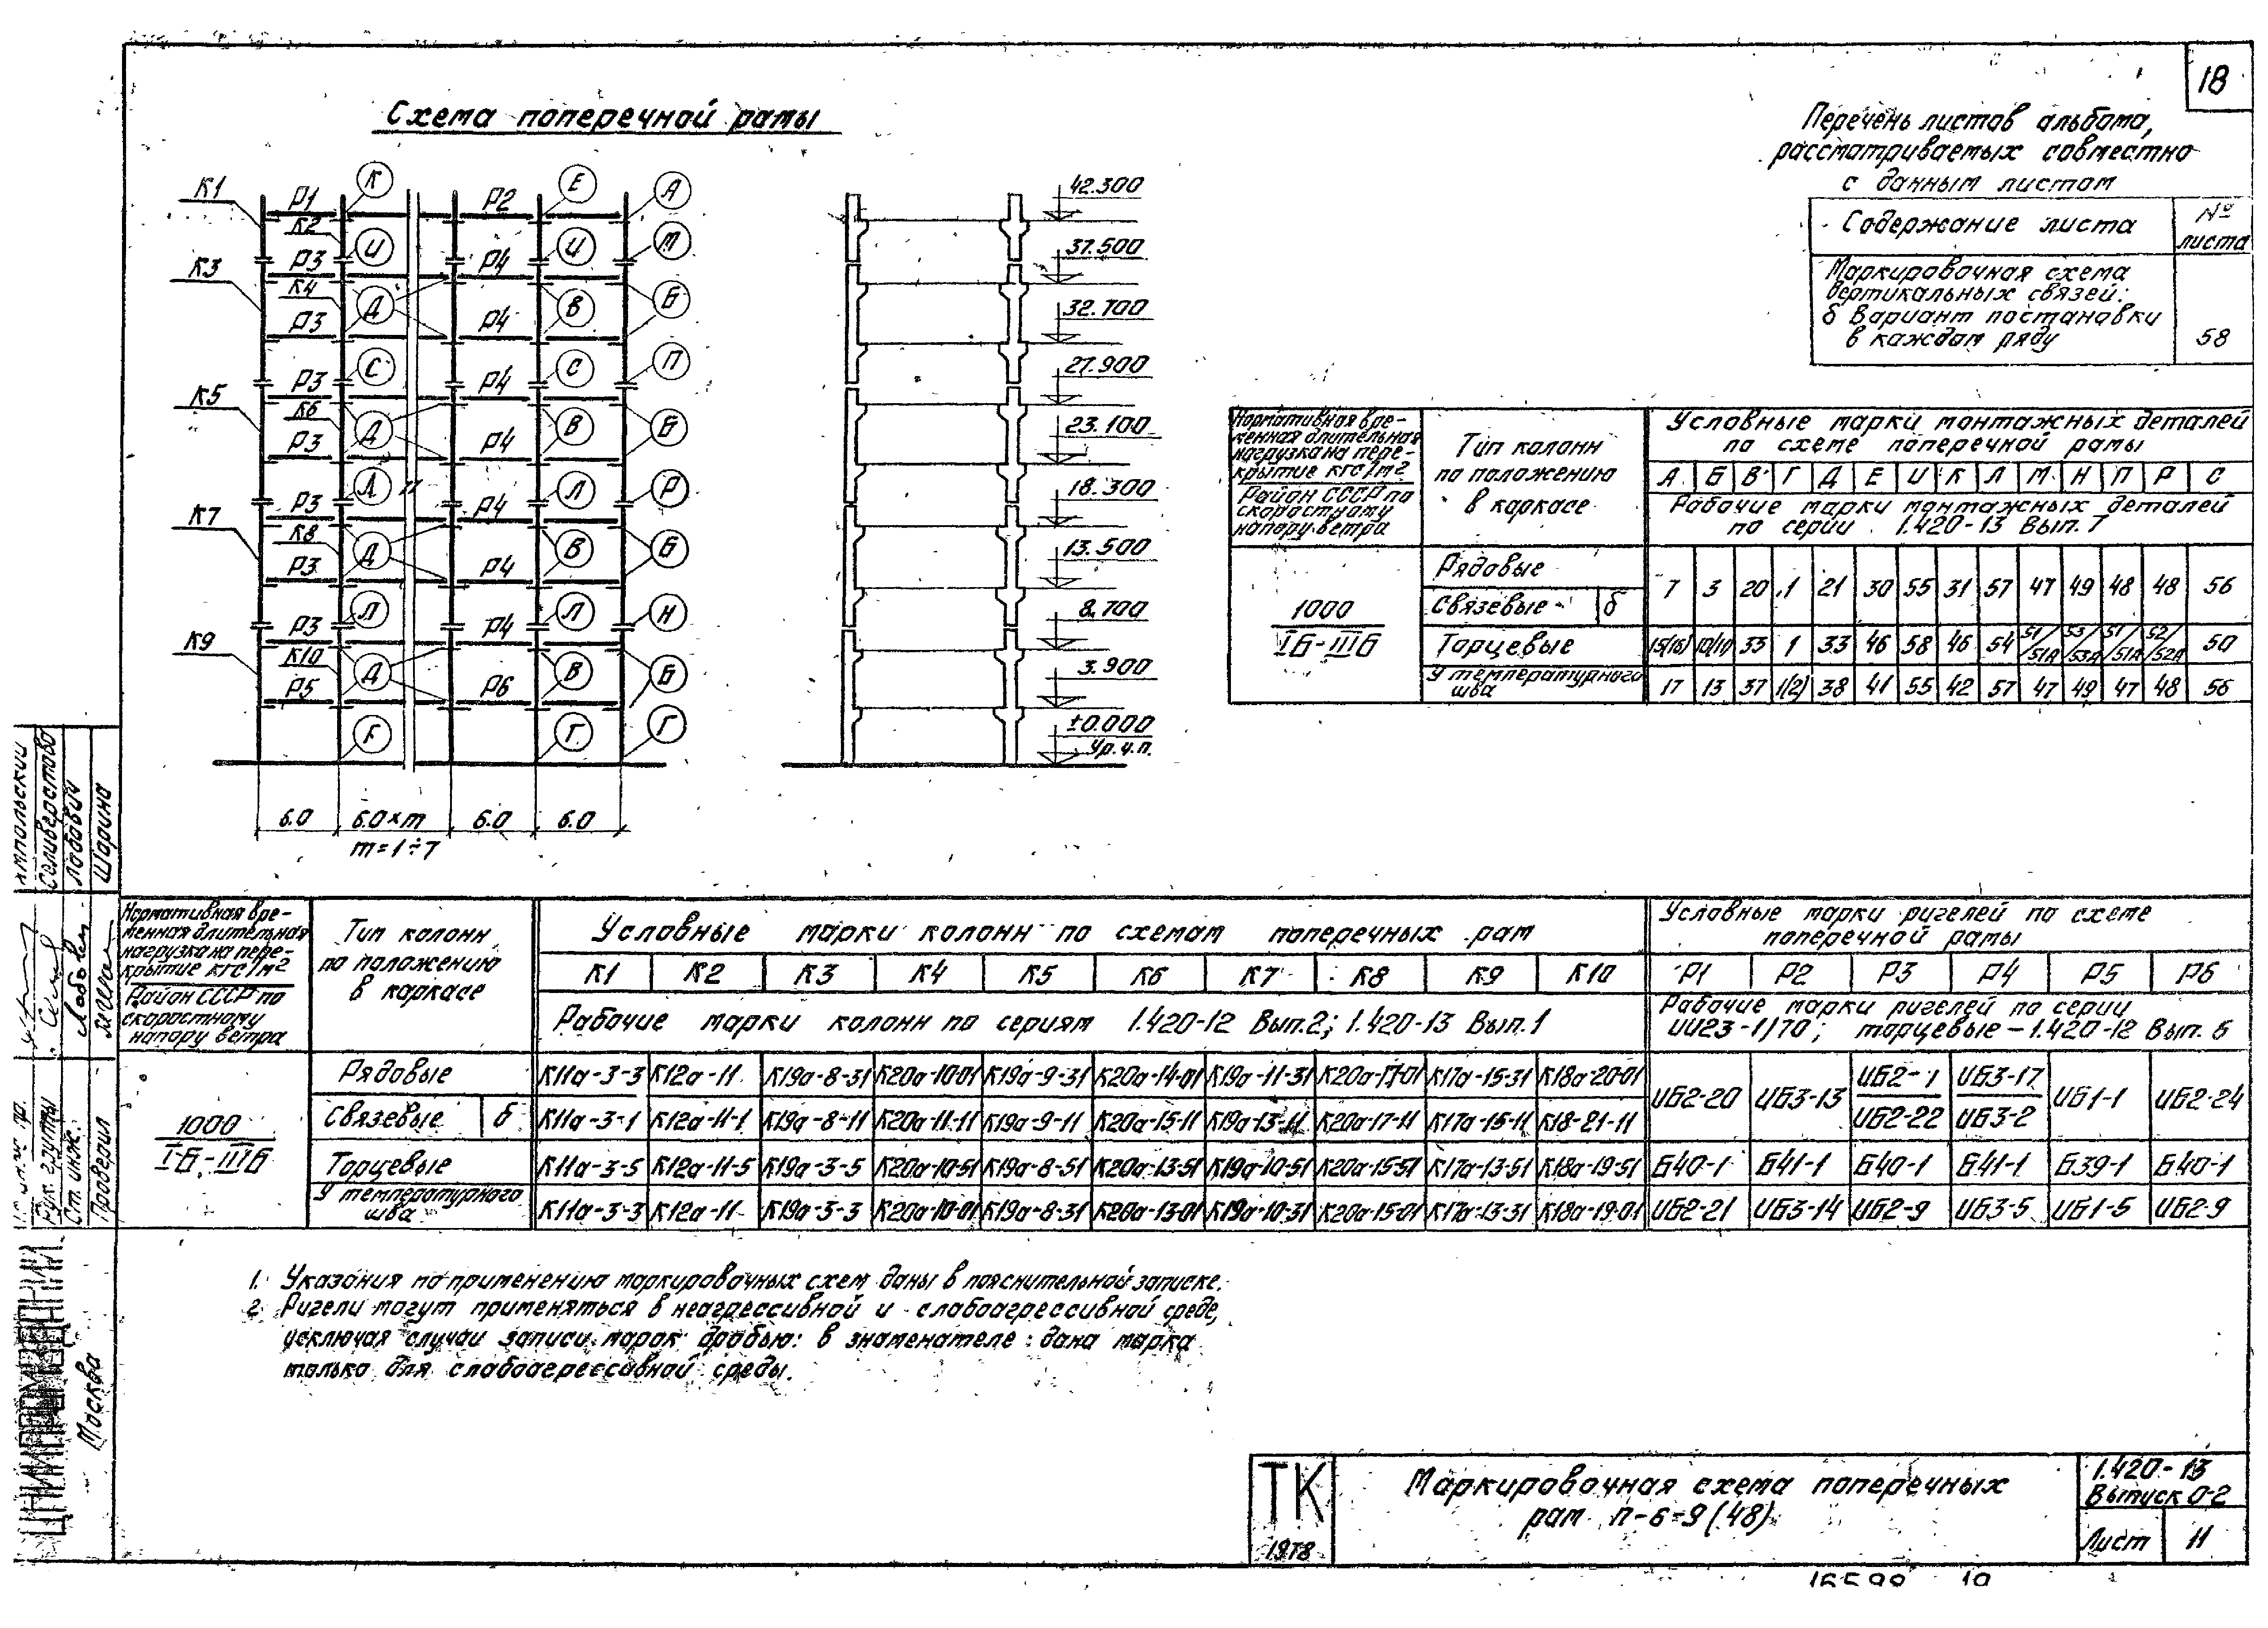 18
Схема поперечной рамы
Перечень листов альбома,
рассматриваемых совместно
с данным листом
Содержание листа
№ листа
Маркировочная схема
вертикальных связей:
б вариант постановки
в каждом ряду
58
К1 Р1 К Р2 Е А
К2 И И М
К3 Р3 Р4
К4 Д В Б
Р3 Р4
С С П
К5 Р3 Р4
К6 Д В Б
Р3 Р4
Л Л Р
К7 Р3 Р4
К8 Д В Б
Р3 Р4
Л Л Н
К9 Р3 Р4
К10 Д В Б
Р5 Р6
Г Г Г
6.0 6.0×m 6.0 6.0
m=1÷7
42.300
37.500
32.700
27.900
23.100
18.300
13.500
8.700
3.900
±0.000
Ур.ч.п.
Нормативная вре-
менная длительная
нагрузка на пере-
крытие кгс/м2
Район СССР по
скоростному
напору ветра
Тип колонн
по положению
в каркасе
Условные марки монтажных деталей
по схеме поперечной рамы
А Б В Г Д Е И К Л М Н П Р С
Рабочие марки монтажных деталей
по серии 1.420-13 Вып. 7
1000
Iб-IIIб
Рядовые
Связевые б
7 3 20 1 21 30 55 31 57 47 49 48 48 56
Торцевые 15(16) 10/11 33 1 33 46 58 46 54 51/51А 53/53А 51/51А 52/52А 50
У температурного
шва
17 13 37 1(2) 38 41 55 42 57 47 49 47 48 56
Нормативная вре-
менная длительная
нагрузка на пере-
крытие кгс/м2
Район СССР по
скоростному
напору ветра
Тип колонн
по положению
в каркасе
Условные марки колонн по схемам поперечных рам
К1 К2 К3 К4 К5 К6 К7 К8 К9 К10
Рабочие марки колонн по сериям 1.420-12 Вып.2; 1.420-13 Вып.1
Условные марки ригелей по схеме
поперечной рамы
Р1 Р2 Р3 Р4 Р5 Р6
Рабочие марки ригелей по серии
ИИ23-1/70; торцевые – 1.420-12 Вып. 6
1000
Iб-IIIб
Рядовые К11а-3-3 К12а-11 К19а-8-31 К20а-10-01 К19а-9-31 К20а-14-01 К19а-11-31 К20а-17-01 К17а-15-31 К18а-20-01
Связевые б К11а-3-1 К12а-11-1 К19а-8-11 К20а-11-11 К19а-9-11 К20а-15-11 К19а-13-11 К20а-17-11 К17а-15-11 К18-21-11
ИБ2-20 ИБ3-13 ИБ2-1/ИБ2-22 ИБ3-17/ИБ3-2 ИБ1-1 ИБ2-24
Торцевые К11а-3-5 К12а-11-5 К19а-3-5 К20а-10-51 К19а-8-51 К20а-13-51 К19а-10-51 К20а-15-51 К17а-13-51 К18а-19-51 Б40-1 Б41-1 Б40-1 Б41-1 Б39-1 Б40-1
У температурного
шва
К11а-3-3 К12а-11 К19а-3-3 К20а-10-01 К19а-8-31 К20а-13-01 К19а-10-31 К20а-15-01 К17а-13-31 К18а-19-01 ИБ2-21 ИБ3-14 ИБ2-9 ИБ3-5 ИБ1-5 ИБ2-9
1. Указания по применению маркировочных схем даны в пояснительной записке.
2. Ригели могут применяться в неагрессивной и слабоагрессивной среде,
исключая случаи записи марок дробью: в знаменателе дана марка
только для слабоагрессивной среды.
Селиверстова
Лобович
Шарина
Рук. группы
Ст. инж.
Проверил
Москва
ТК
1978
Маркировочная схема поперечных
рам П-6-9(48)
1.420-13
Выпуск 0-2
Лист 11